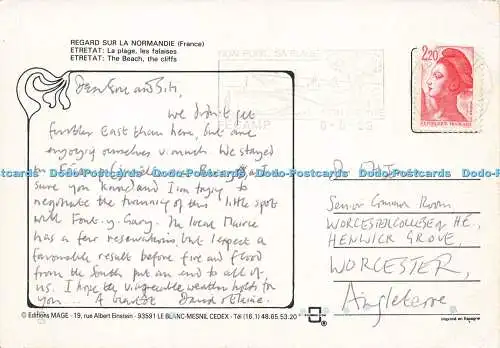 REGARD SUR LA NORMANDIE (France)
ETRETAT: La plage, les falaises
ETRETAT: The Beach, the cliffs
SON PORT, SA PLAGE
FECAMP
2,20
REPUBLIQUE FRANÇAISE
Dear and
we didn't get
further East than here, but are
enjoying ourselves v. much. We stayed
in
sure you know and I'm trying to
negotiate the twinning of this little spot
with Font-y-Gary. The local Mairie
has a few reservations, but I expect a
favourable result before fire and flood
from the South put an end to all of
us. I hope the weather holds for
you... A bientôt David & Elaine.
Dodo-Postcards Dodo-Postcards Dodo-Postcards Dodo-Postcards Dodo-Postcards
Senior Common Room
WORCESTER COLLEGE of H.E.,
HENWICK GROVE,
WORCESTER,
Angleterre
© Editions MAGE - 19, rue Albert Einstein - 93591 LE BLANC-MESNIL CEDEX - Tél (16.1) 48.65.53.20
Imprimé en Espagne